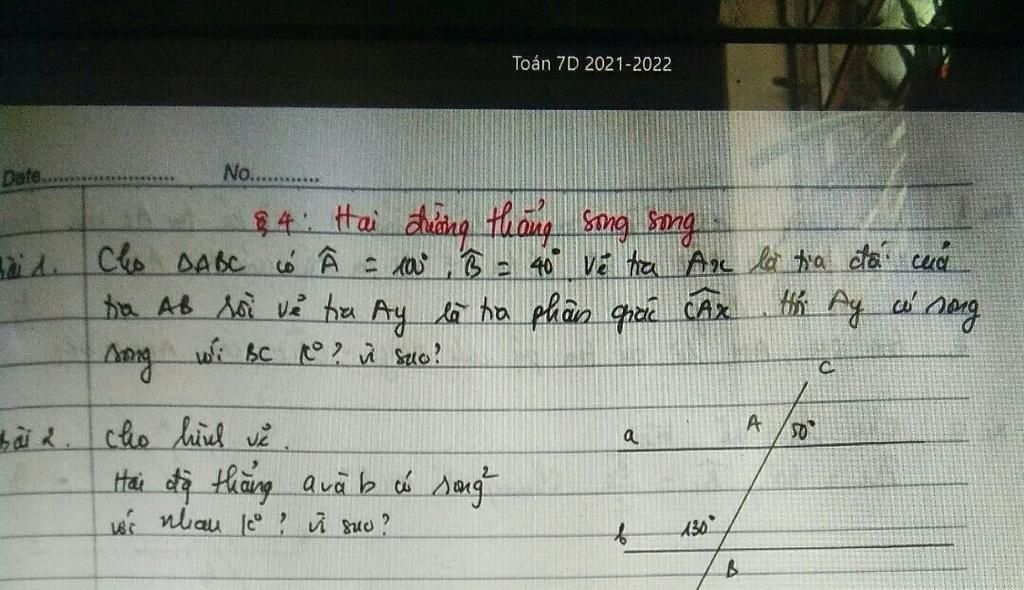 Toán 7D 2021-2022
Date........................ No.............
§4: Hai đường thẳng song song
Bài 1. Cho ΔABC có Â = 100°, B̂ = 40° Vẽ tia Ax là tia đối của
tia AB rồi vẽ tia Ay là tia phân giác CÂx. Hỏi Ay có song
song với BC k°? vì sao?
C
Bài 2. Cho hình vẽ.
a A 50°
Hai đg thẳng a và b có song²
với nhau k°? vì sao?
b 130°
B